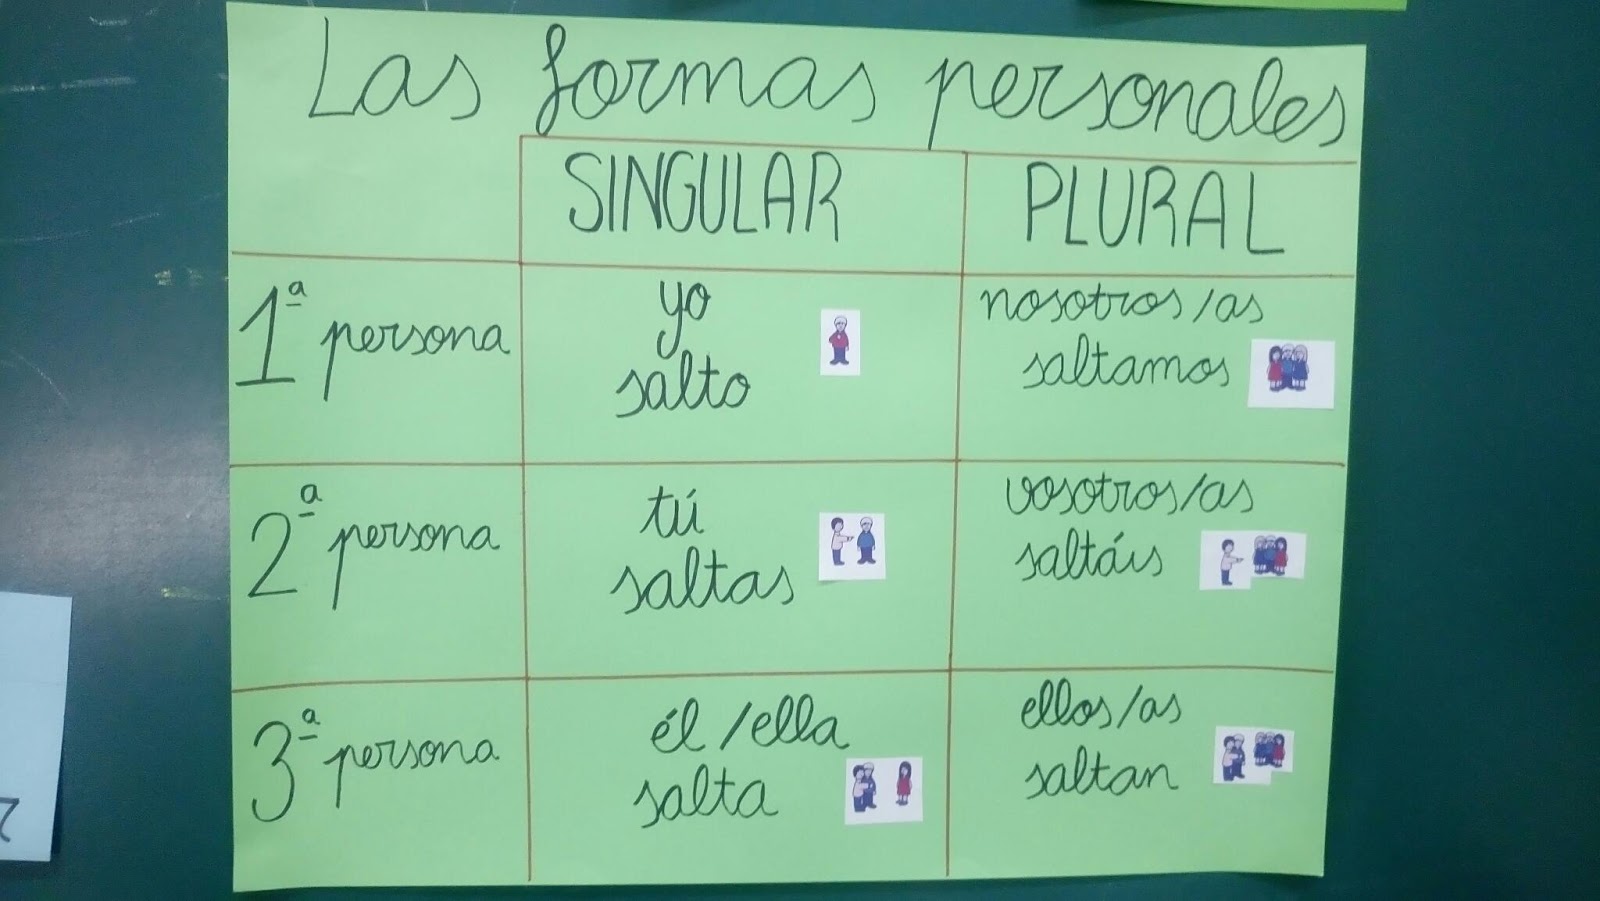 Las formas personales
SINGULAR PLURAL
1ª persona
yo
salto
nosotros/as
saltamos
2ª persona
tú
saltas
vosotros/as
saltáis
3ª persona
él/ella
salta
ellos/as
saltan